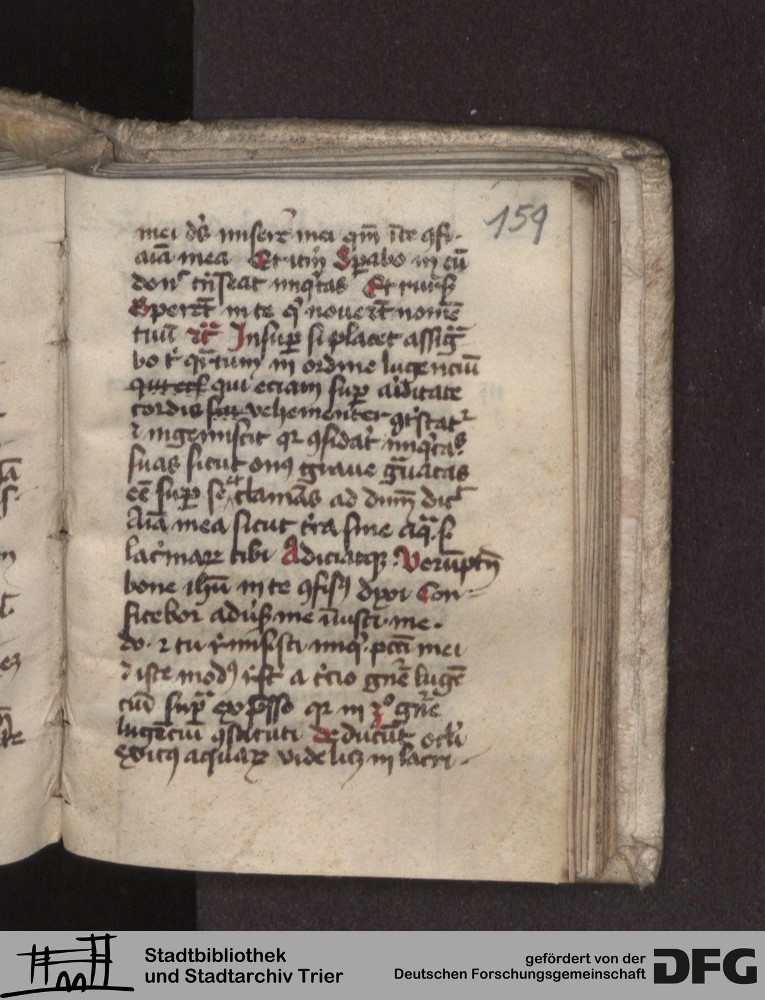 159
mei ds̄ miserē mei qm̄ ī te ɔfi-
aīa mea Et itm̄ Spabo in eū
donc trāseat iniqtas Et rursꝫ
Sperēt in te q nouerūt nomē
tuū ꝛc Insup si placet assig
bo t in ordine lugenciū
qui eciam sup ariditate
cordis vehementer
⁊ ingemiscit qꝛ iniqtas
suas sicut onꝰ graue gͣuatas
eē sup se clamās ad dnm̄ dic
Aīa mea sicut tra sine aqͣ
lacrimaꝝ tibi Adiciatqꝫ Verūptn̄
bone ihū in te ɔfisꝰ dixi Con-
fitebor aduersū me iniusti. me-
do. ⁊ tu r̄misisti iniq. pccī mei
⁊ iste modꝰ a tercio gn̄e lugē-
ciū supͣ exp̄sso qꝛ in 3º gn̄e
lugēciū ɔstituti deducūt oc̄li
exitꝰ aquaꝝ videlicꝫ in lacri-
Stadtbibliothek
und Stadtarchiv Trier
gefördert von der
Deutschen Forschungsgemeinschaft
DFG